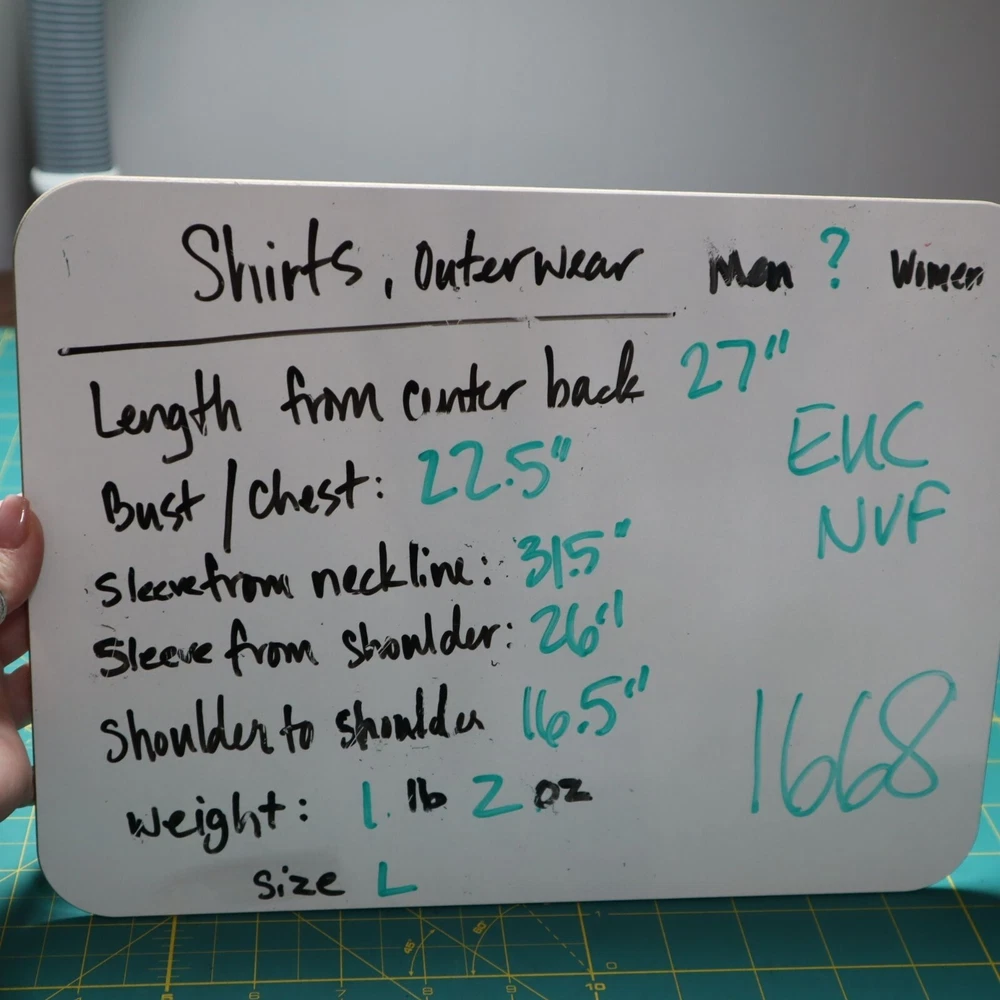 Shirts, Outerwear Men ? Women
Length from center back 27"
EUC
Bust/Chest: 22.5"
NVF
Sleeve from neckline: 31.5"
Sleeve from shoulder: 26"
Shoulder to shoulder 16.5"
1668
Weight: 1 lb 2 oz
Size L
5 6 7 8 9 10
45° 60°
1
0